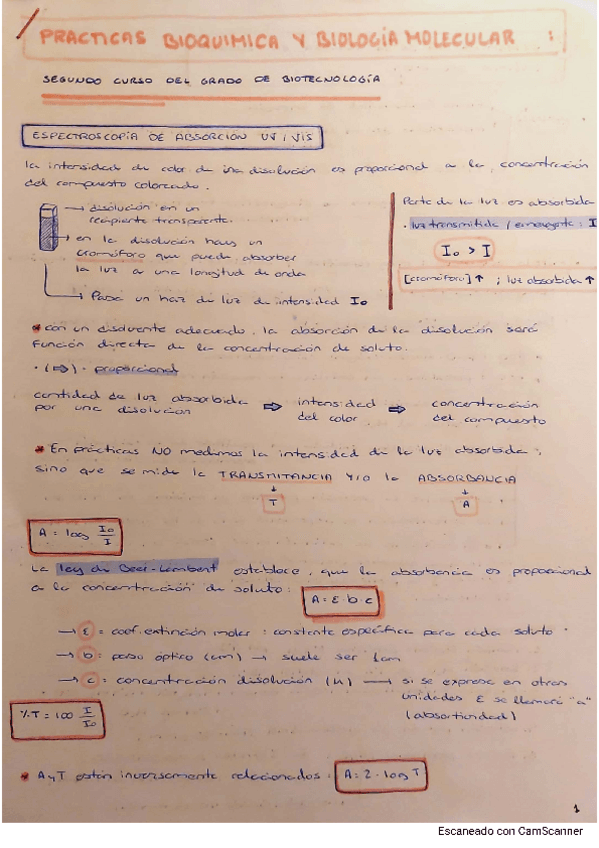 PRACTICAS BIOQUIMICA Y BIOLOGÍA MOLECULAR :
SEGUNDO CURSO DEL GRADO DE BIOTECNOLOGÍA
ESPECTROSCOPÍA DE ABSORCION UV / VIS
la intensidad de color de una disolución es proporcional a la concentración
del compuesto coloreado.
→ disolución en un
recipiente transparente.
→ en la disolución hay un
cromóforo que puede absorber
la luz a una longitud de onda
→ Pasa un haz de luz de intensidad I₀
Parte de la luz es absorbida
· luz transmitida / emergente: I
I₀ > I
[cromóforo] ↑ ; luz absorbida ↑
* con un disolvente adecuado, la absorción de la disolución será
función directa de la concentración de soluto.
· (⇨) · proporcional
cantidad de luz absorbida ⇨ intensidad ⇨ concentración
por una disolución del color del compuesto
* En prácticas NO medimos la intensidad de la luz absorbida,
sino que se mide la TRANSMITANCIA Y/O la ABSORBANCIA
↓ ↓
T A
A = log I₀/I
La ley de Beer-Lambert establece, que la absorbancia es proporcional
a la concentración de soluto: A = ε · b · c
→ ε = coef. extinción molar : constante específica para cada soluto ·
→ b = paso óptico (cm) → suele ser 1cm
→ c = concentración disolución (M) → si se expresa en otras
unidades ε se llamará "a"
(absortividad)
%T = 100 I/I₀
* A y T están inversamente relacionados. A = 2 - log T
1
Escaneado con CamScanner